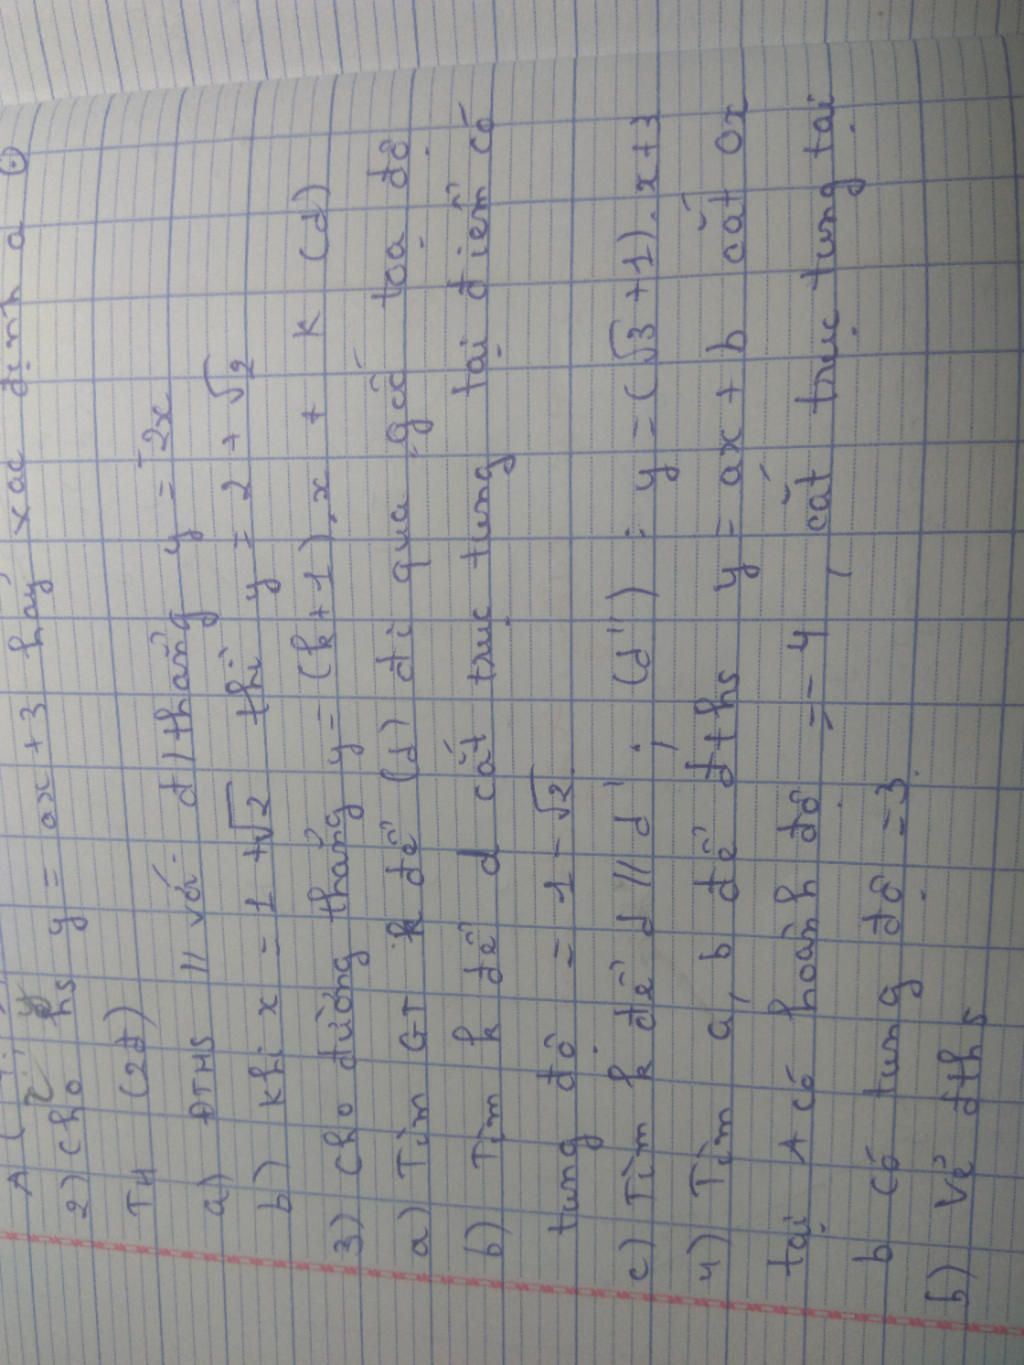 2) Cho hs y = ax + 3 hãy xác định a
TH (2đ)
a) ĐTHS // với đ/thẳng y = -2x
b) Khi x = 1 + √2 thì y = 2 + √2
3) Cho đường thẳng y = (k+1).x + K (d)
a) Tìm GT k để (d) đi qua gốc toạ độ
b) Tìm k để d cắt trục tung tại điểm có
tung độ = 1 - √2
c) Tìm k để d // d' . (d') : y = (√3 + 1).x + 3
4) Tìm a, b để đths y = ax + b cắt Ox
tại A có hoành độ = -4, cắt trục tung tại
b có tung độ = 3.
b) Vẽ đths